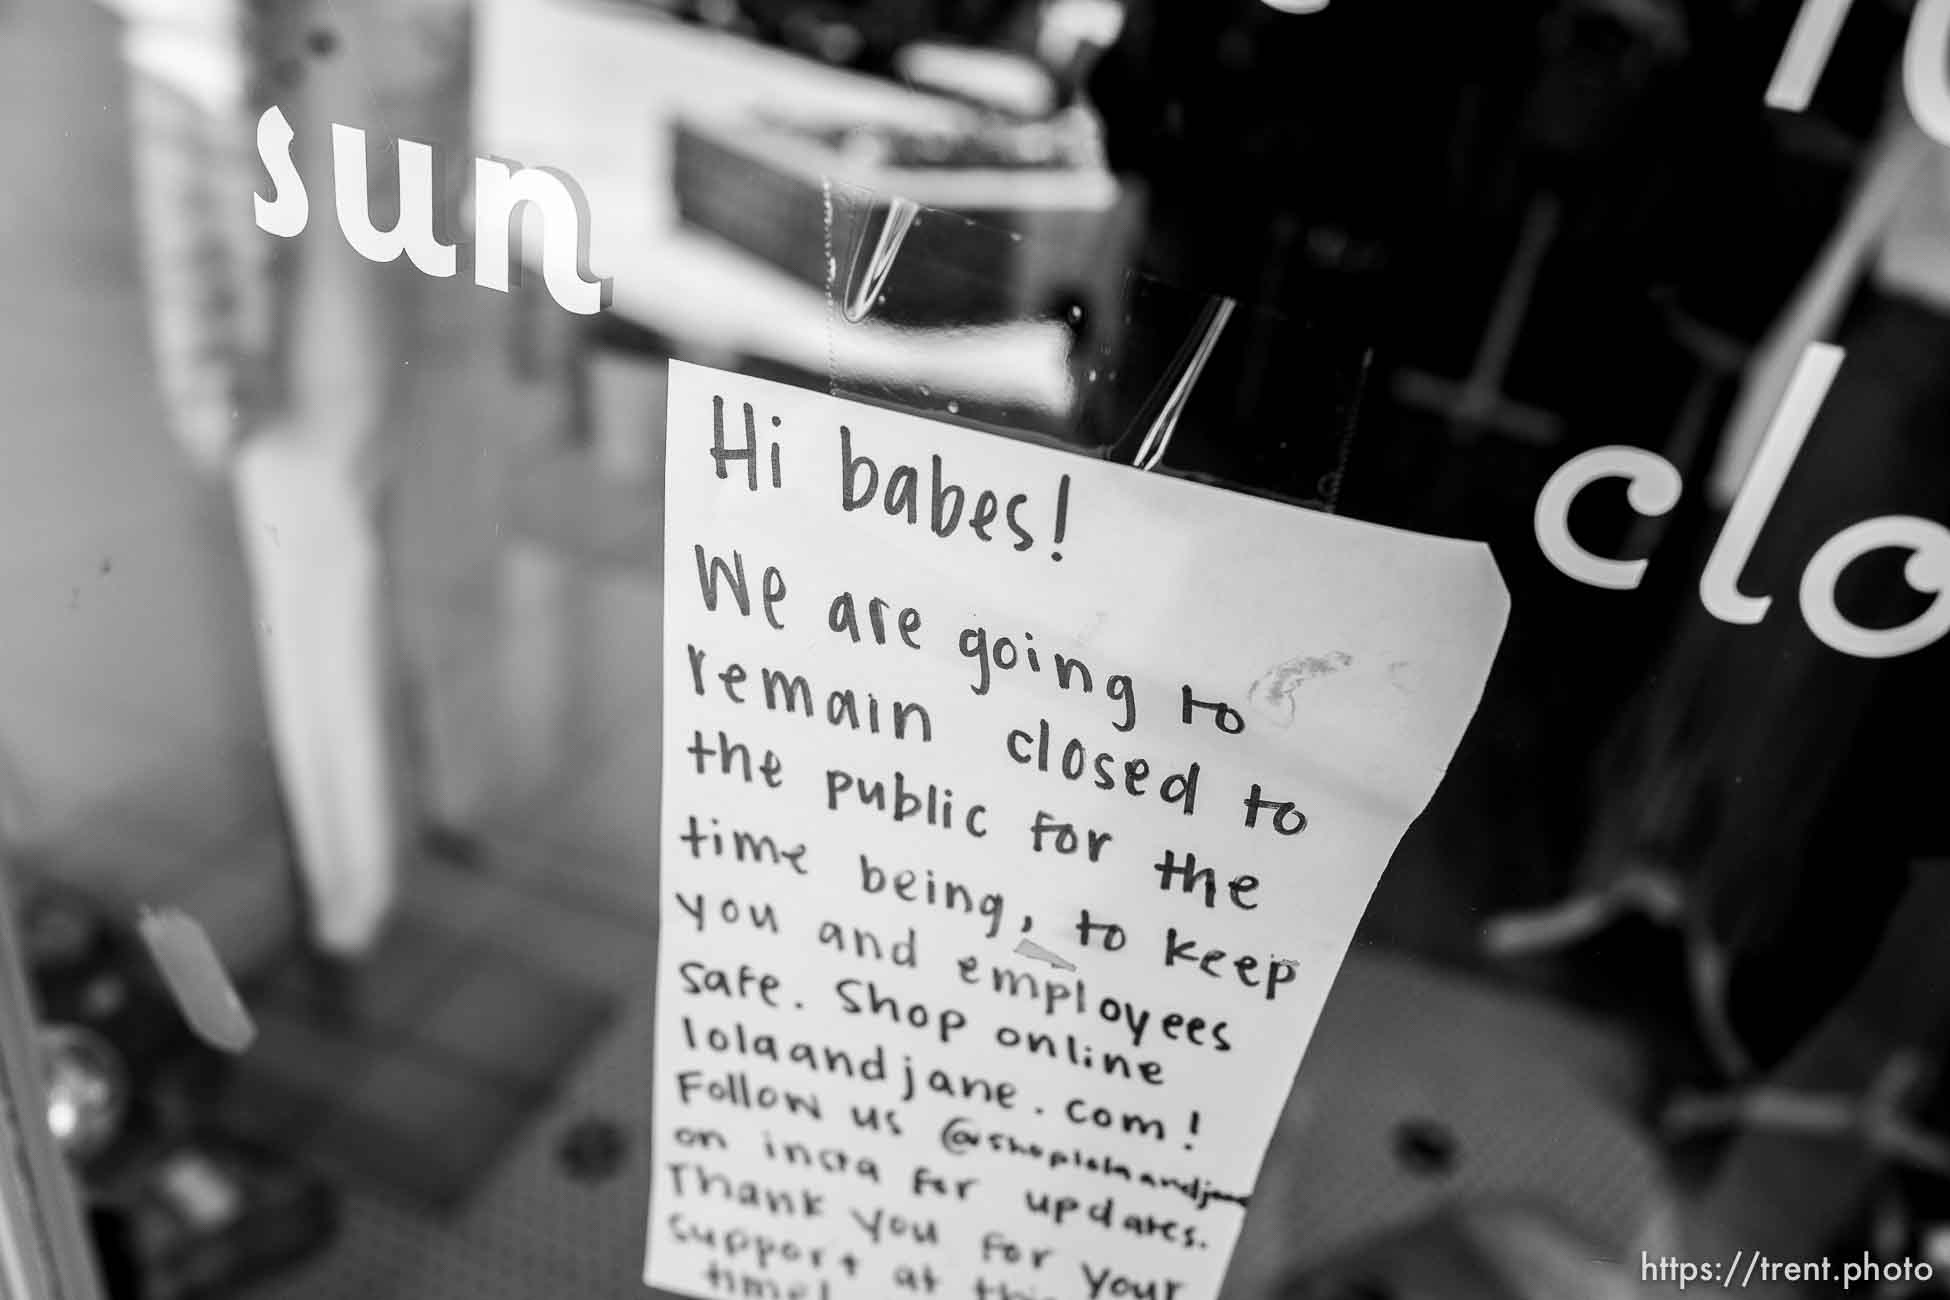 sun
clo
Hi babes!
We are going to
remain closed to
the public for the
time being, to keep
you and employees
safe. Shop online
lolaandjane.com!
Follow us @shoplolaandjane
on insta for updates.
Thank you for your
support at this
time!
https://trent.photo